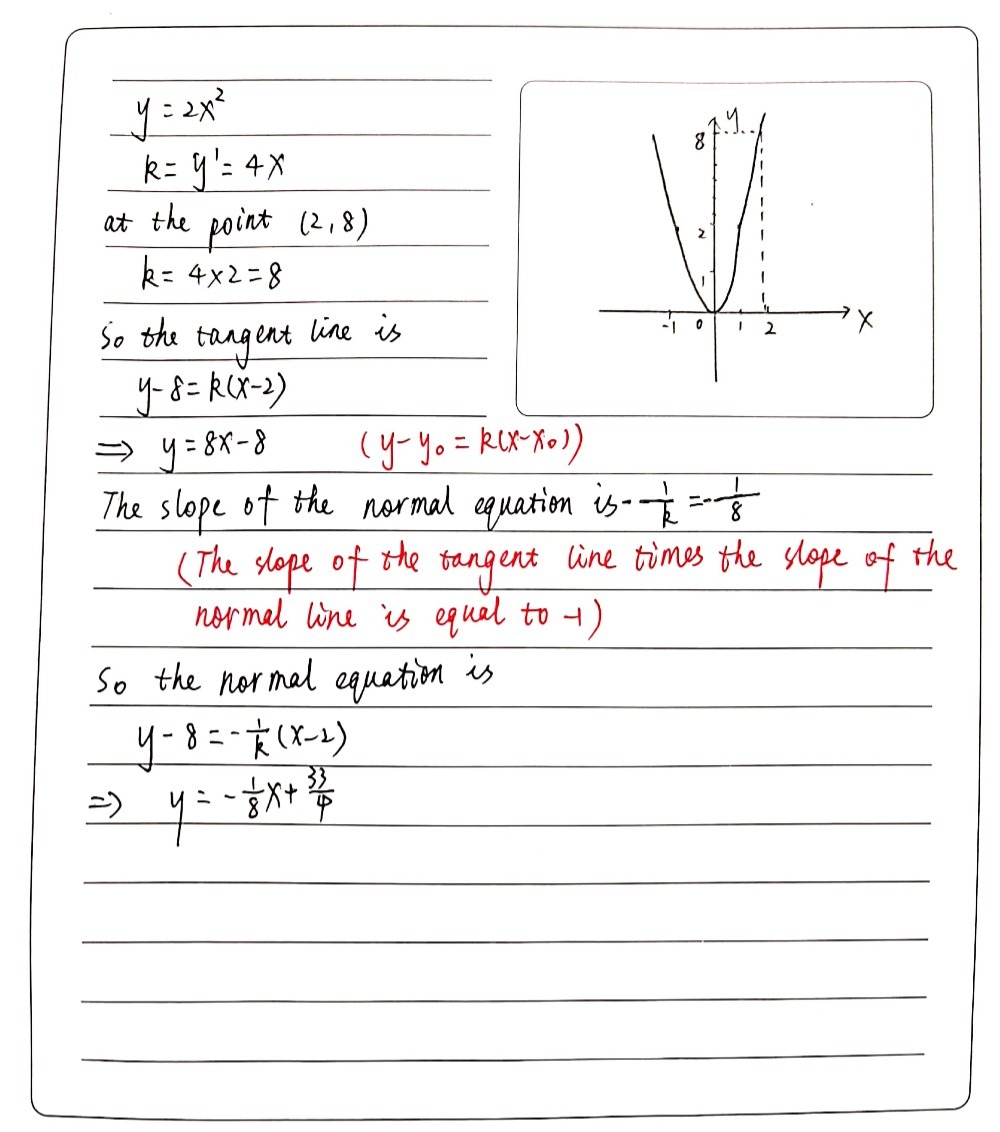 y = 2x²
k = y' = 4x
at the point (2,8)
k = 4×2 = 8
So the tangent line is
y-8 = k(x-2)
⇒ y = 8x-8 (y-y₀ = k(x-x₀))
The slope of the normal equation is -1/k = -1/8
(The slope of the tangent line times the slope of the
normal line is equal to -1)
So the normal equation is
y-8 = -1/k(x-2)
⇒ y = -1/8x + 33/4
y
8
2
1
-1 0 1 2 x